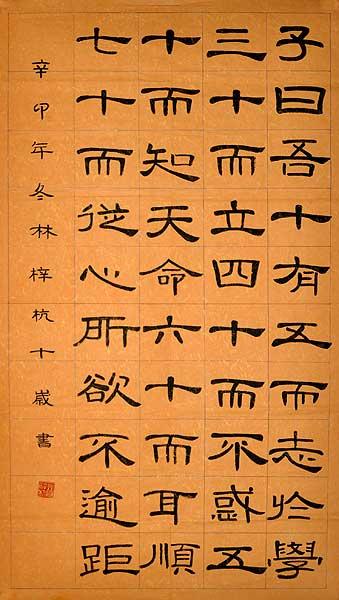 子曰吾十有五而志於學
三十而立四十而不惑五
十而知天命六十而耳順
七十而從心所欲不逾距
辛卯年冬林梓杭十歲書